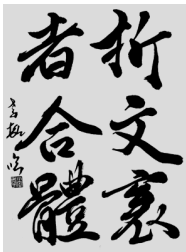 折文裏
者合體